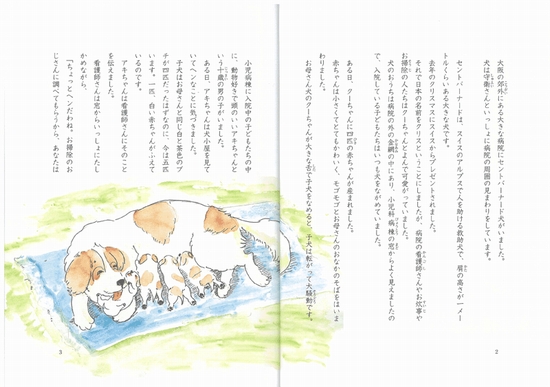 大阪の郊外にある大きな病院にセントバーナード犬がいました。
犬は守衛さんといっしょに病院の周囲の見まわりをしています。
セントバーナードは、スイスのアルプスで人を助ける救助犬で、肩の高さが一メー
トルくらいある大きな犬です。
去年のクリスマスにスイスからプレゼントされました。
それで日本の名前をクリスということにしましたが、病院の看護師さんやお炊事や
お掃除の人たちはクーちゃんとよんで可愛がっていました。
犬のおうちは病院の外の金網の中にあり、小児科病棟の窓からよく見えましたの
で、入院している子どもたちはいつも犬をながめていました。
ある日、クーちゃんに四匹の赤ちゃんが産まれました。
赤ちゃんは小さくてとてもかわいく、モゴモゴとお母さんのおなかのそばをはいま
わりました。
お母さん犬のクーちゃんが大きな舌で子犬をなめると、子犬は転がって大騒動です。
2
小児病棟に入院中の子どもたちの中
に、動物好きで頭のいいアキちゃんと
いう十歳の男の子がいました。
ある日、アキちゃんは犬小屋を見て
いてヘンなことに気づきました。
子犬はお母さんと同じ白と茶色のブ
チが四匹だったはずなのに、今は五匹
います。一匹、白い赤ちゃんがふえて
いるのです。
アキちゃんは看護師さんにそのこと
を伝えました。
看護師さんは窓からいっしょにたし
かめながら、
「ちょっとヘンだわね。お掃除のお
じさんに調べてもらうから、あなたは
3